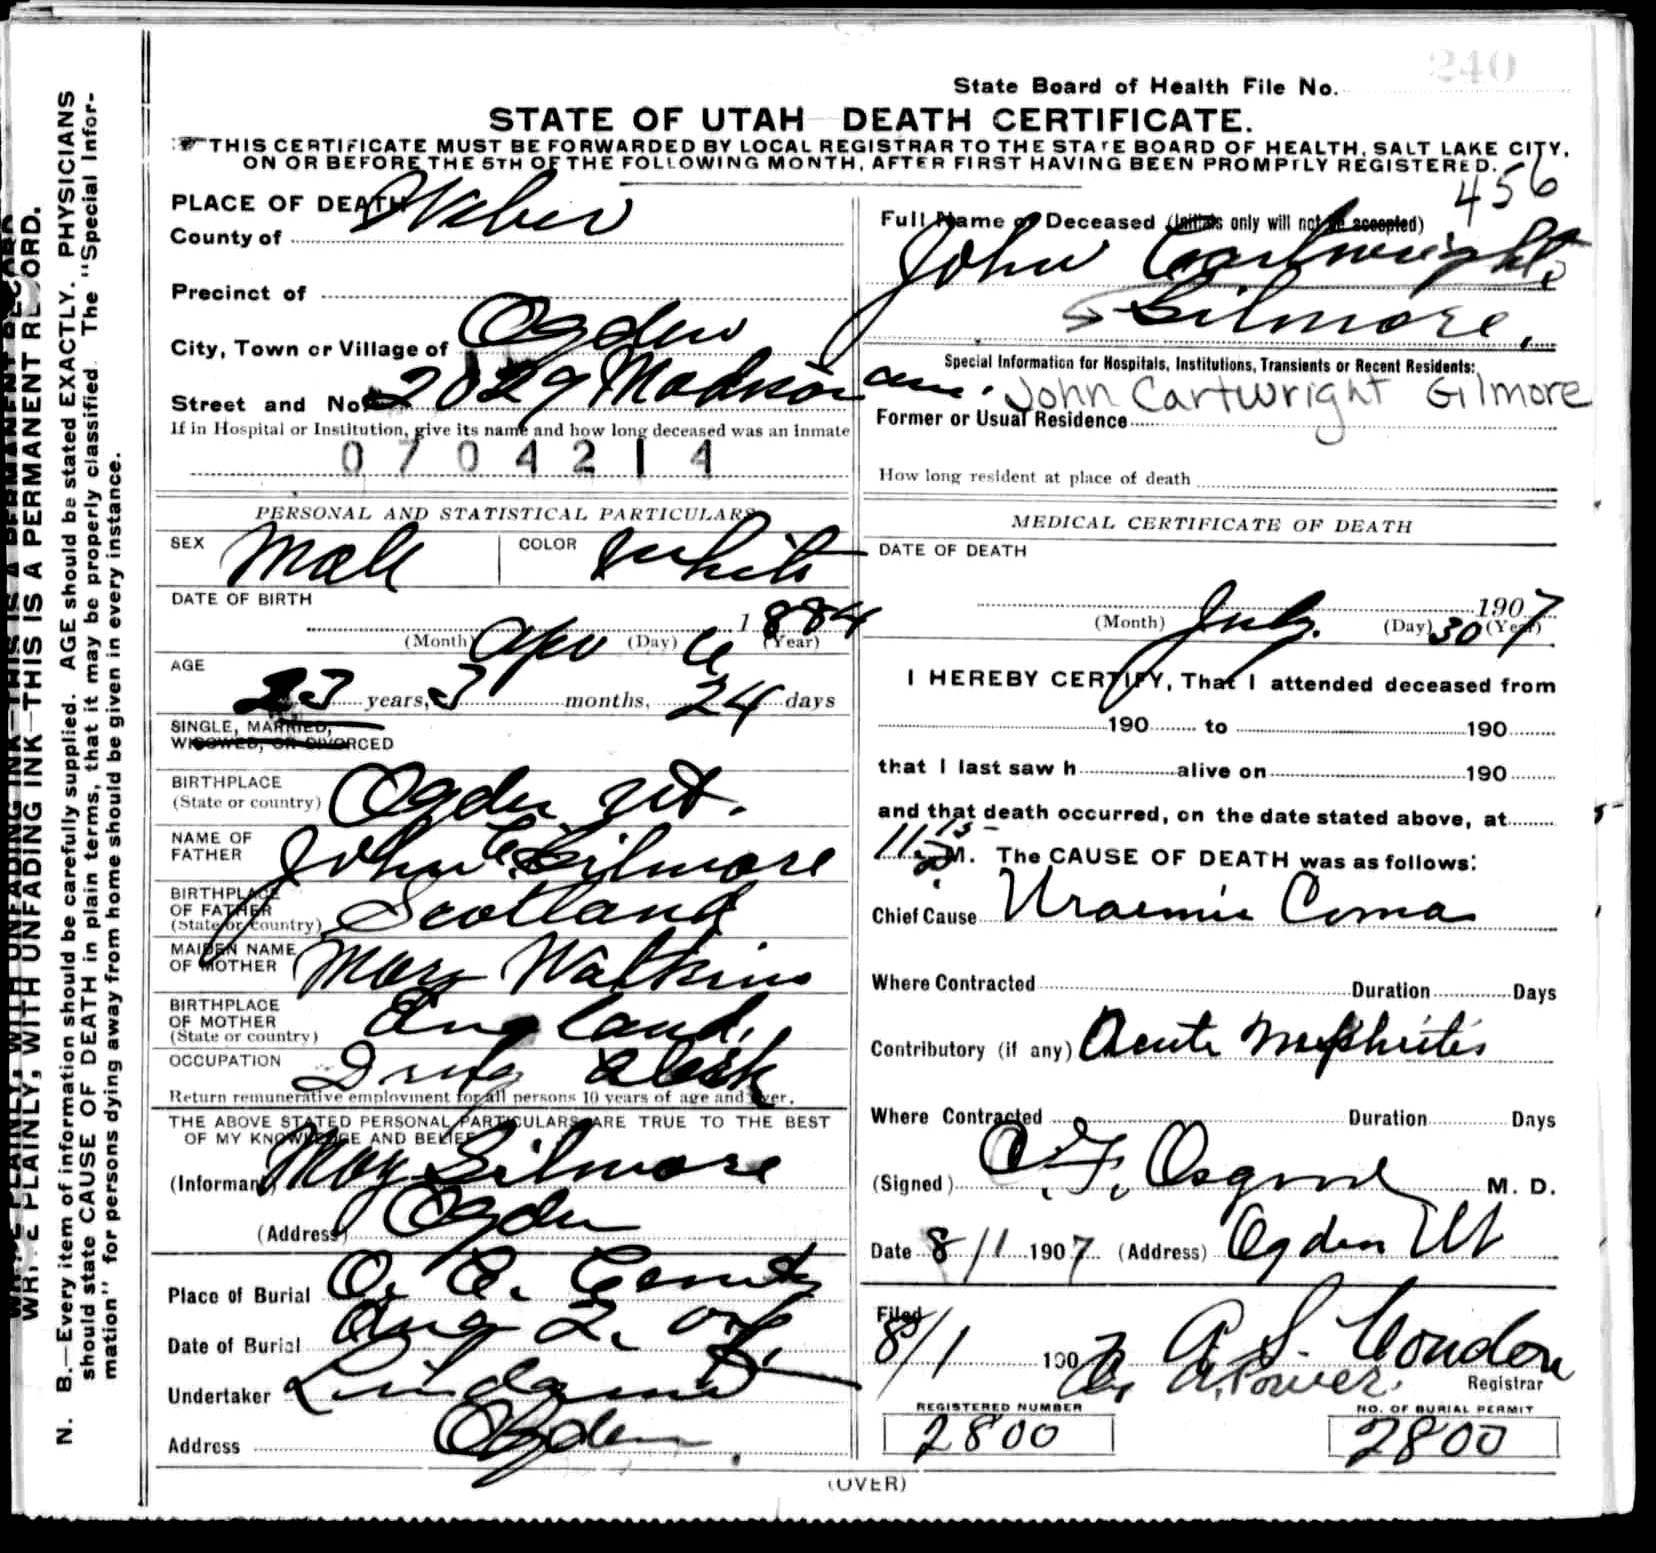 240
State Board of Health File No.
STATE OF UTAH DEATH CERTIFICATE.
THIS CERTIFICATE MUST BE FORWARDED BY LOCAL REGISTRAR TO THE STATE BOARD OF HEALTH, SALT LAKE CITY,
ON OR BEFORE THE 5TH OF THE FOLLOWING MONTH, AFTER FIRST HAVING BEEN PROMPTLY REGISTERED.
456
PLACE OF DEATH
County of Weber
Precinct of
City, Town or Village of Ogden
Street and No. 2029 Madison ave.
If in Hospital or Institution, give its name and how long deceased was an inmate
0704214
PERSONAL AND STATISTICAL PARTICULARS
SEX Male COLOR White
DATE OF BIRTH
(Month) Apr (Day) 6 1884 (Year)
AGE
23 years, 3 months, 24 days
SINGLE, MARRIED,
WIDOWED, OR DIVORCED
BIRTHPLACE
(State or country) Ogden Ut.
NAME OF
FATHER John C Gilmore
BIRTHPLACE
OF FATHER
(State or country) Scotland
MAIDEN NAME
OF MOTHER Mary Watkins
BIRTHPLACE
OF MOTHER
(State or country) England,
OCCUPATION Drug Clerk
Return remunerative employment for all persons 10 years of age and over.
THE ABOVE STATED PERSONAL PARTICULARS ARE TRUE TO THE BEST
OF MY KNOWLEDGE AND BELIEF
(Informant) May Gilmore
(Address) Ogden
Place of Burial O. C. Cemty
Date of Burial Aug 2, 07
Undertaker
Address Ogden
Full Name of Deceased (Initials only will not be accepted)
John Cartwright
Gilmore,
Special Information for Hospitals, Institutions, Transients or Recent Residents:
John Cartwright Gilmore
Former or Usual Residence
How long resident at place of death
MEDICAL CERTIFICATE OF DEATH
DATE OF DEATH
(Month) July. (Day) 30 1907 (Year)
I HEREBY CERTIFY, That I attended deceased from
190 to 190
that I last saw h alive on 190
and that death occurred, on the date stated above, at
11 15 M. The CAUSE OF DEATH was as follows:
Chief Cause Uraemic Coma
Where Contracted Duration Days
Contributory (if any) Acute Nephritis
Where Contracted Duration Days
(Signed) C. F. Osgood M. D.
Date 8/1 1907 (Address) Ogden Ut
Filed
8/1 1907 A S. Condon
By A. Power. Registrar
REGISTERED NUMBER
2800
NO. OF BURIAL PERMIT
2800
(OVER)
WRITE PLAINLY, WITH UNFADING INK—THIS IS A PERMANENT RECORD.
N. B.—Every item of information should be carefully supplied. AGE should be stated EXACTLY. PHYSICIANS
should state CAUSE OF DEATH in plain terms, that it may be properly classified. The "Special Infor-
mation" for persons dying away from home should be given in every instance.